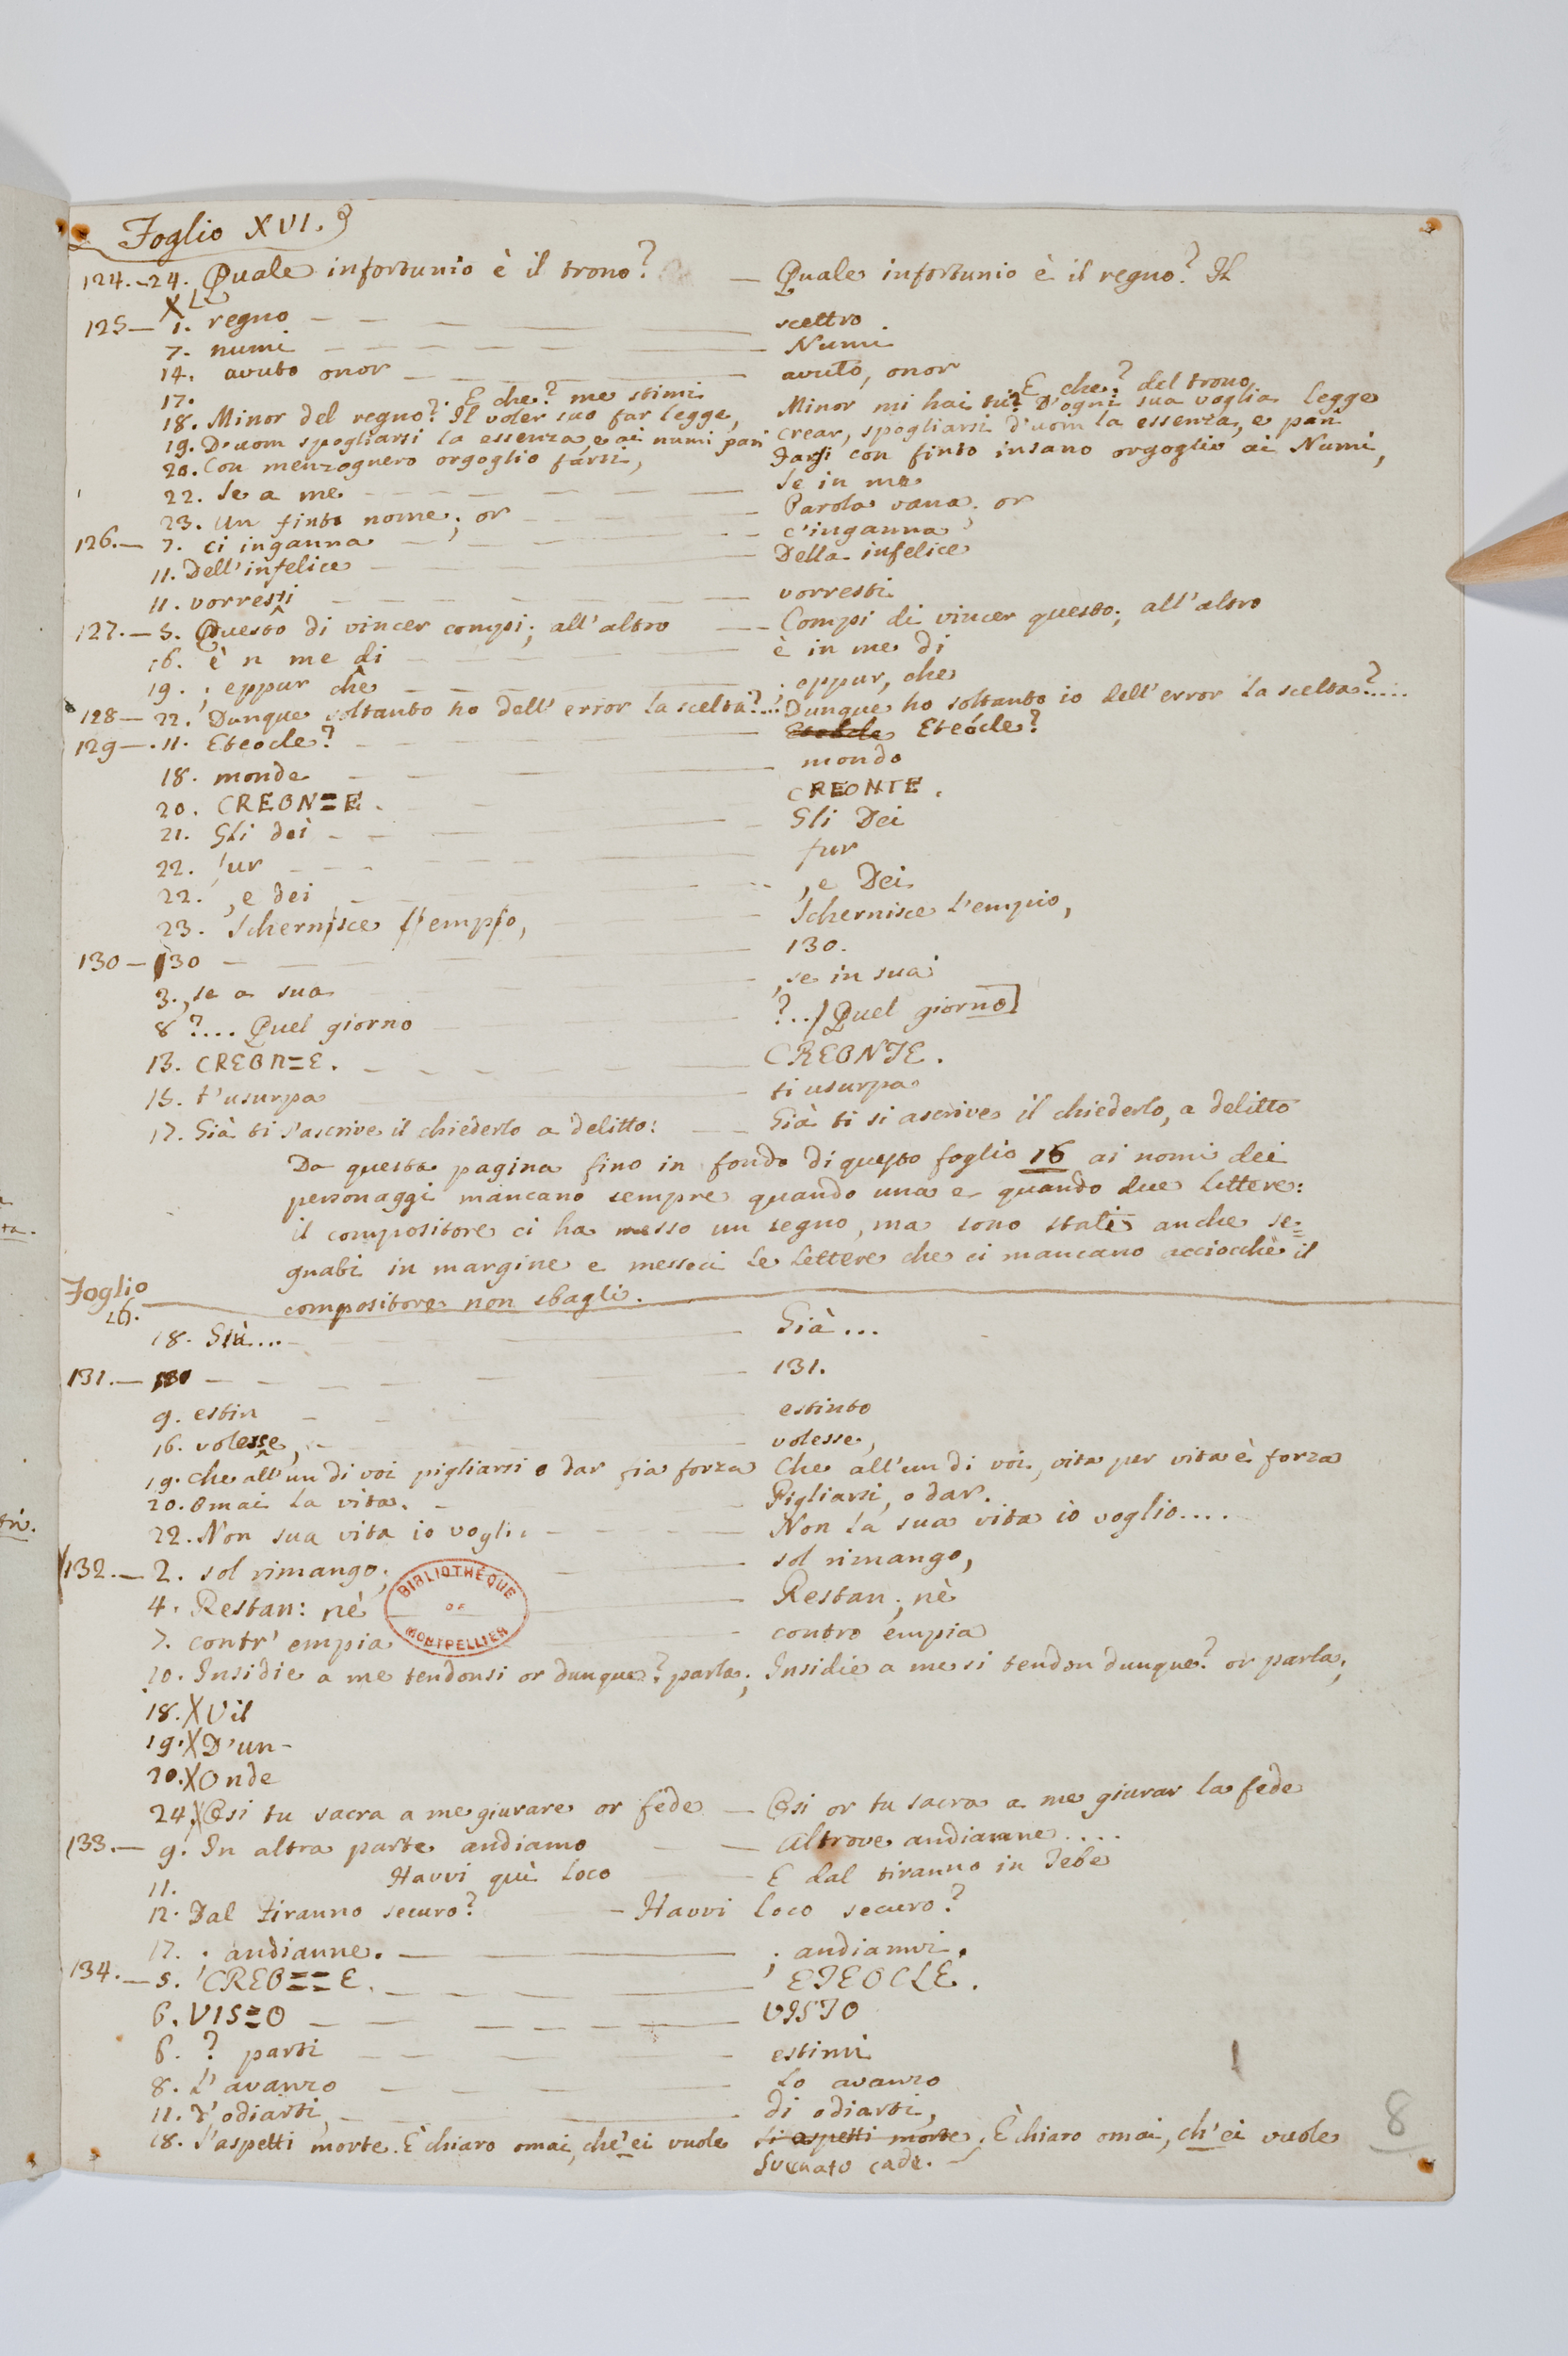 Foglio XVI.
124.-24. Quale infortunio è il trono? — Quale infortunio è il regno? Il
125— 1. regno — scettro
7. numi — Numi
14. avuto onor — avuto, onor
17. . E che? me stimi E che? del trono
18. Minor del regno? Il voler suo far legge, Minor mi hai tu? D'ogni sua voglia legge
19. D'uom spogliarsi la essenza, e ai numi pari Crear, spogliarsi d'uom la essenza, e pari
20. Con menzognero orgoglio farsi, Farsi con finto insano orgoglio ai Numi,
22. Se a me — Se in me
23. Un finto nome; or — Parola vana; or
126.— 7. ci inganna — c'inganna
11. Dell'infelice — Della infelice
11. vorresti — vorresti
127.— 5. Questo di vincer compi; all'altro — Compi di vincer questo; all'altro
16. è n me di — è in me di
19. ; eppur chè — ; eppur, che
128— 22. Dunque soltanto ho dell'error la scelta?... Dunque ho soltanto io dell'error la scelta?.....
129—. 11. Eteocle? — Eteócle?
18. monde — mondo
20. CREON=E. CREONTE.
21. Gli dei — Gli Dei
22. 'ur — fur
22. , e dei — , e Dei
23. Schernisce l'empio, — Schernisce l'empio,
130— 130 — 130.
3. , se a sua — , se in sua
8 ?.... Quel giorno — ?../Quel giorno]
13. CREON=E. — CREONTE.
15. t'usurpa — ti usurpa
17. Già ti s'ascrive il chiederlo a delitto: — Già ti si ascrive il chiederlo, a delitto
Da questa pagina fino in fondo di questo foglio 16 ai nomi dei
personaggi mancano sempre quando una e quando due lettere:
il compositore ci ha messo un segno, ma sono stati anche se=
gnati in margine e messeci le lettere che ci mancano acciocchè il
compositore non sbagli.
Foglio
16.
18. Già.... — Già...
131.— 130 — 131.
9. estin — estinto
16. volesse, — volesse,
19. che all'un di voi pigliarsi o dar fia forza Che all'un di voi, vita per vita è forza
20. Omai la vita. — Pigliarsi, o dar.
22. Non sua vita io vogli. — Non la sua vita io voglio....
132.— 2. sol rimango; — sol rimango,
4. Restan: nè — Restan; nè
7. contr'empia — contro empia
10. Insidie a me tendonsi or dunque? parla; Insidie a me si tendon dunque? or parla;
BIBLIOTHÈQUE DE MONTPELLIER
18. X Vil
19. X D'un-
20. X Onde
24. X Osi tu sacra a me giurare or fede — Osi or tu sacra a me giurar la fede
133.— 9. In altra parte andiamo — Altrove andianne....
11. Havvi quì loco — E dal tiranno in Tebe
12. Dal tiranno securo? — Havvi loco securo?
17. . andianne. — ; andianvi.
134.— 5. 'CREO==E. — ETEOCLE.
6. VIS=O — VISTO
6. ? parti — estimi
8. L'avanzo — Lo avanzo
11. d'odiarti, — di odiarti,
18. S'aspetti morte. È chiaro omai, che'ei vuole si aspetti morte. È chiaro omai, ch'ei vuole
Svenato cade.
8